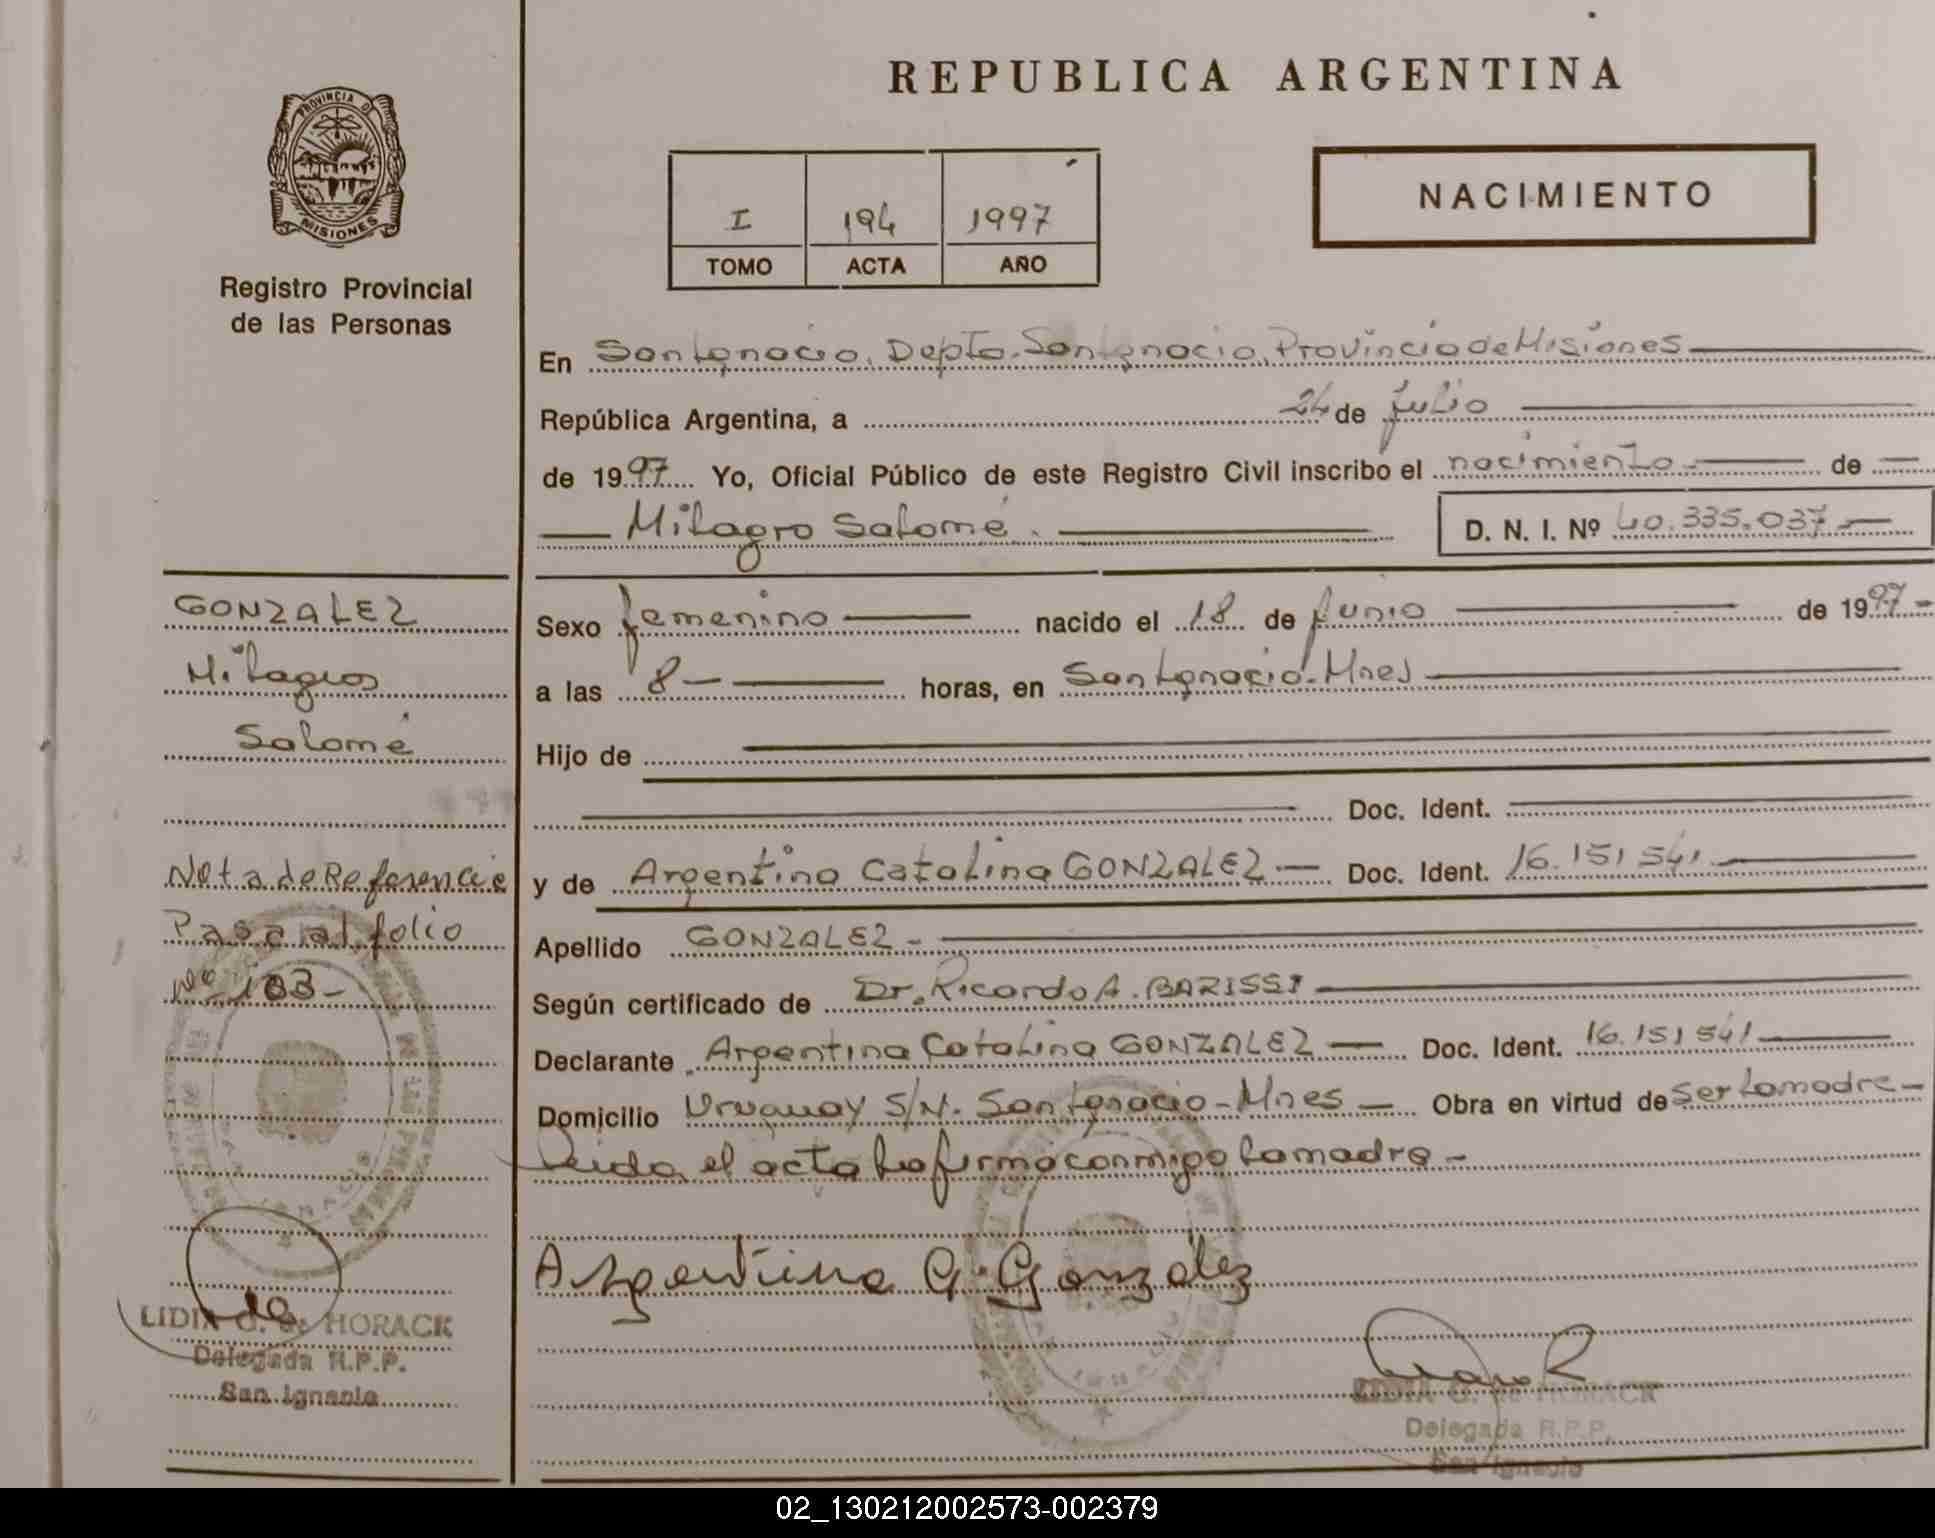 PROVINCIA DE
MISIONES
Registro Provincial
de las Personas
REPUBLICA ARGENTINA
NACIMIENTO
I 194 1997
TOMO ACTA AÑO
En San Ignacio, Depto. San Ignacio, Provincia de Misiones
República Argentina, a 24 de julio
de 1997 Yo, Oficial Público de este Registro Civil inscribo el nacimiento de
Milagro Salomé. D. N. I. Nº 40.335.037
Sexo femenino nacido el 18 de junio de 1997
a las 8 horas, en San Ignacio-Mnes
Hijo de
Doc. Ident.
y de Argentina Catalina GONZALEZ Doc. Ident. 16.151.541
Apellido GONZALEZ
Según certificado de Dr. Ricardo A. BARISSI
Declarante Argentina Catalina GONZALEZ Doc. Ident. 16.151541
Domicilio Uruguay S/N. San Ignacio-Mnes Obra en virtud de ser la madre
Leida el acta la firma conmigo la madre
Argentina C. González
LIDIA G. de HORACK
Delegada R.P.P.
San Ignacio
GONZALEZ
Milagros
Salomé
Nota de Referencia
Pasa al folio
Nº 103
LIDIA G. de HORACK
Delegada R.P.P.
San Ignacio
02_130212002573-002379